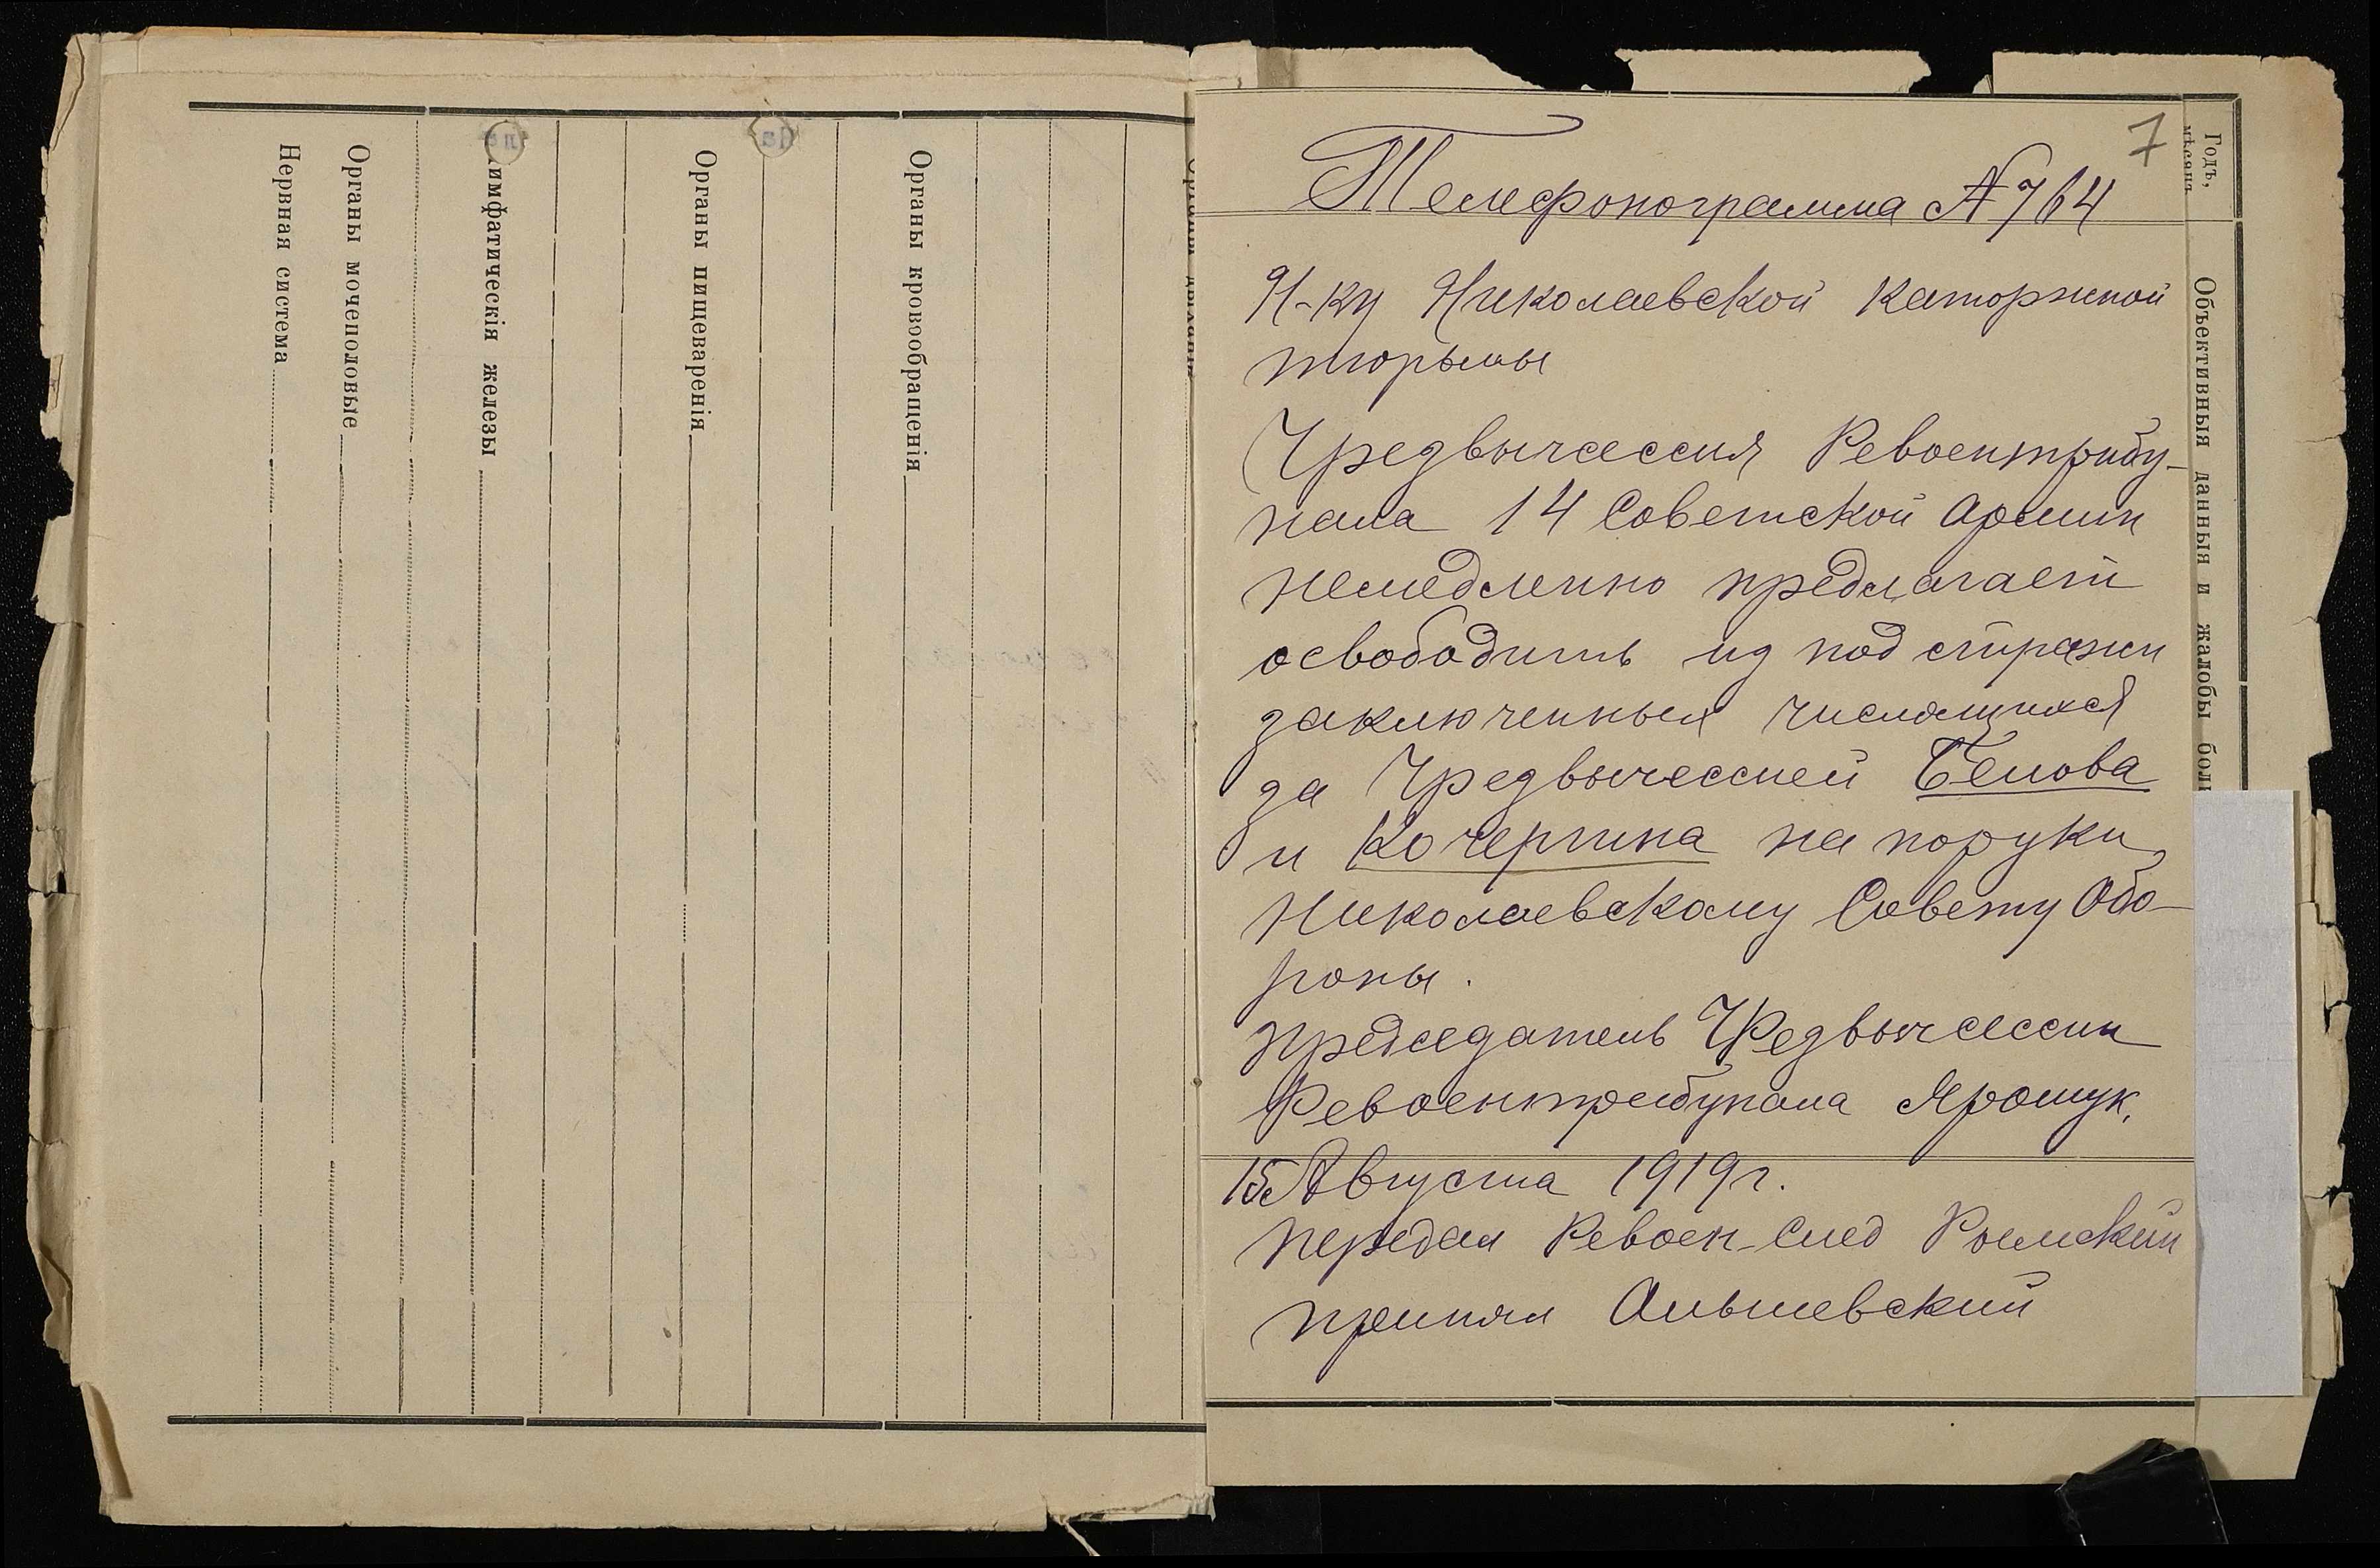 Нервная система
Органы мочеполовые
имфатическія железы
Органы пищеваренія
Органы кровообращенія
7
Телефонограмма № 764
Н-ку Николаевской каторжной
тюрьмы
Чрезвычсессия Ревоентрибу-
нала 14 Советской Армии
немедленно предлагает
освободить из под стражи
заключенных числящихся
за Чрезвычсессией Белова
и Кочергина на поруки
Николаевскому Совету Обо-
роны.
Председатель Чрезвычсессии
Ревоентрибунала Ярошук.
15 Августа 1919 г.
передал Ревоен-След
принял
Годъ,
мѣсяцъ
Объективныя данныя и жалобы